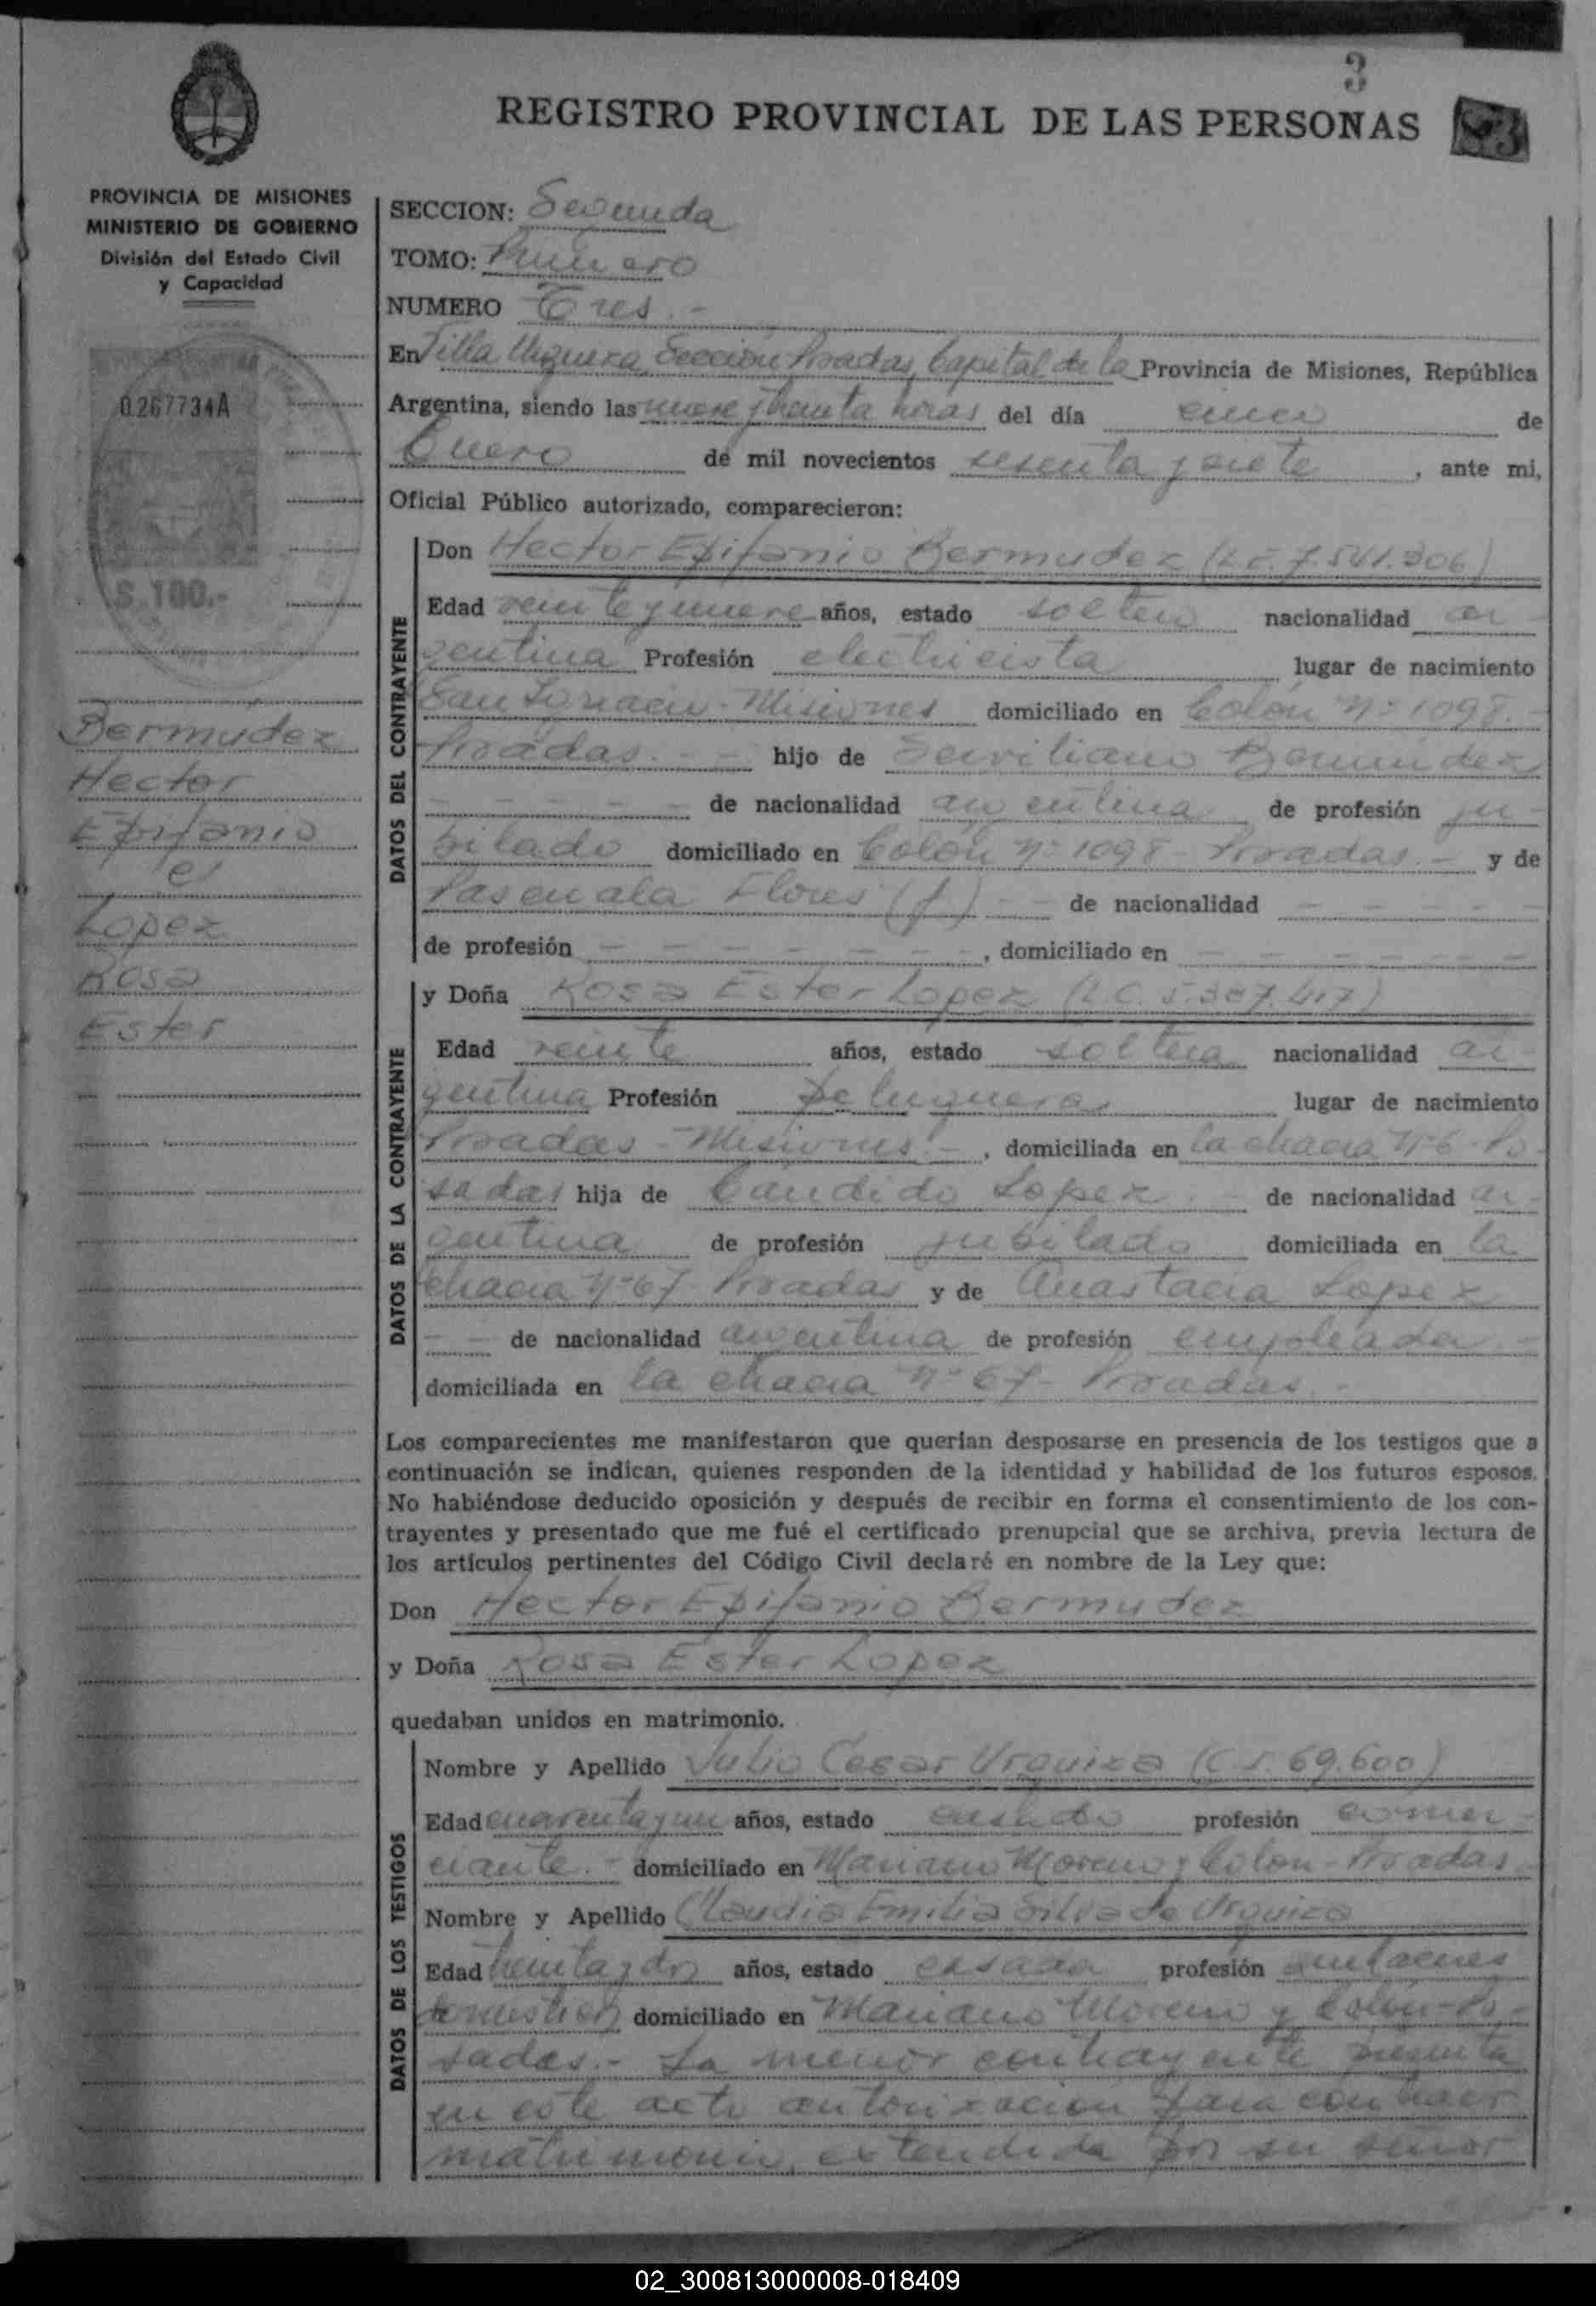 3
REGISTRO PROVINCIAL DE LAS PERSONAS
PROVINCIA DE MISIONES
MINISTERIO DE GOBIERNO
División del Estado Civil
y Capacidad
0267734A
$ 100.-
Bermudez
Hector
Epifanio
Lopez
Rosa
Ester
SECCION: Segunda
TOMO: Primero
NUMERO Tres.-
En Villa Urquiza, Sección Posadas, Capital de la Provincia de Misiones, República
Argentina, siendo las nueve y treinta horas del día cinco de
Enero de mil novecientos sesenta y siete, ante mi,
Oficial Público autorizado, comparecieron:
DATOS DEL CONTRAYENTE
Don Hector Epifanio Bermudez (L.E. 7.541.306)
Edad veinte y nueve años, estado soltero nacionalidad ar-
gentina Profesión electricista lugar de nacimiento
San Ignacio - Misiones domiciliado en Colón Nº 1098.-
Posadas.- - hijo de Serviliano Bermúdez
- - - - - - de nacionalidad argentina de profesión ju-
bilado domiciliado en Colón Nº 1098 Posadas.- y de
Pascuala Flores (f) - - de nacionalidad - - - - -
de profesión - - - - - - -, domiciliado en - - - - - -
DATOS DE LA CONTRAYENTE
y Doña Rosa Ester Lopez (L.C. 5.307.417)
Edad veinte años, estado soltera nacionalidad ar-
gentina Profesión peluquera lugar de nacimiento
Posadas - Misiones.-, domiciliada en la chacra Nº 6 - Po-
sadas hija de Candido Lopez.- de nacionalidad ar-
gentina de profesión jubilado domiciliada en la
chacra Nº 67 - Posadas y de Anastacia Lopez
- - de nacionalidad argentina de profesión empleada -
domiciliada en la chacra Nº 67 - Posadas.-
Los comparecientes me manifestaron que querían desposarse en presencia de los testigos que a
continuación se indican, quienes responden de la identidad y habilidad de los futuros esposos.
No habiéndose deducido oposición y después de recibir en forma el consentimiento de los con-
trayentes y presentado que me fué el certificado prenupcial que se archiva, previa lectura de
los artículos pertinentes del Código Civil declaré en nombre de la Ley que:
Don Hector Epifanio Bermudez
y Doña Rosa Ester Lopez
quedaban unidos en matrimonio.
DATOS DE LOS TESTIGOS
Nombre y Apellido Julio Cesar Urquiza (C.I. 69.600)
Edad cuarenta y un años, estado casado profesión comer-
ciante.- domiciliado en Mariano Moreno y Colon - Posadas
Nombre y Apellido Claudia Emilia Silva de Urquiza
Edad treinta y dos años, estado casada profesión quehaceres
domesticos domiciliado en Mariano Moreno y Colón - Po-
sadas.- La menor contrayente presenta
en este acto autorización para contraer
matrimonio, extendida por su señor
02_300813000008-018409